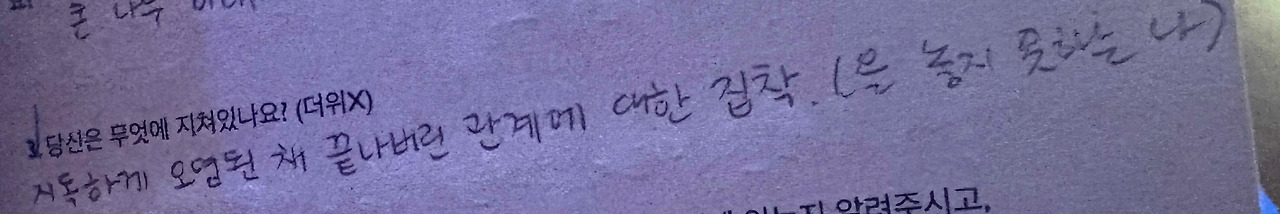 큰 나무 아래
당신은 무엇에 지쳐있나요? (더위X)
지독하게 오염된 채 끝나버린 관계에 대한 집착. (을 놓지 못하는 나)
있는지 알려주시고,